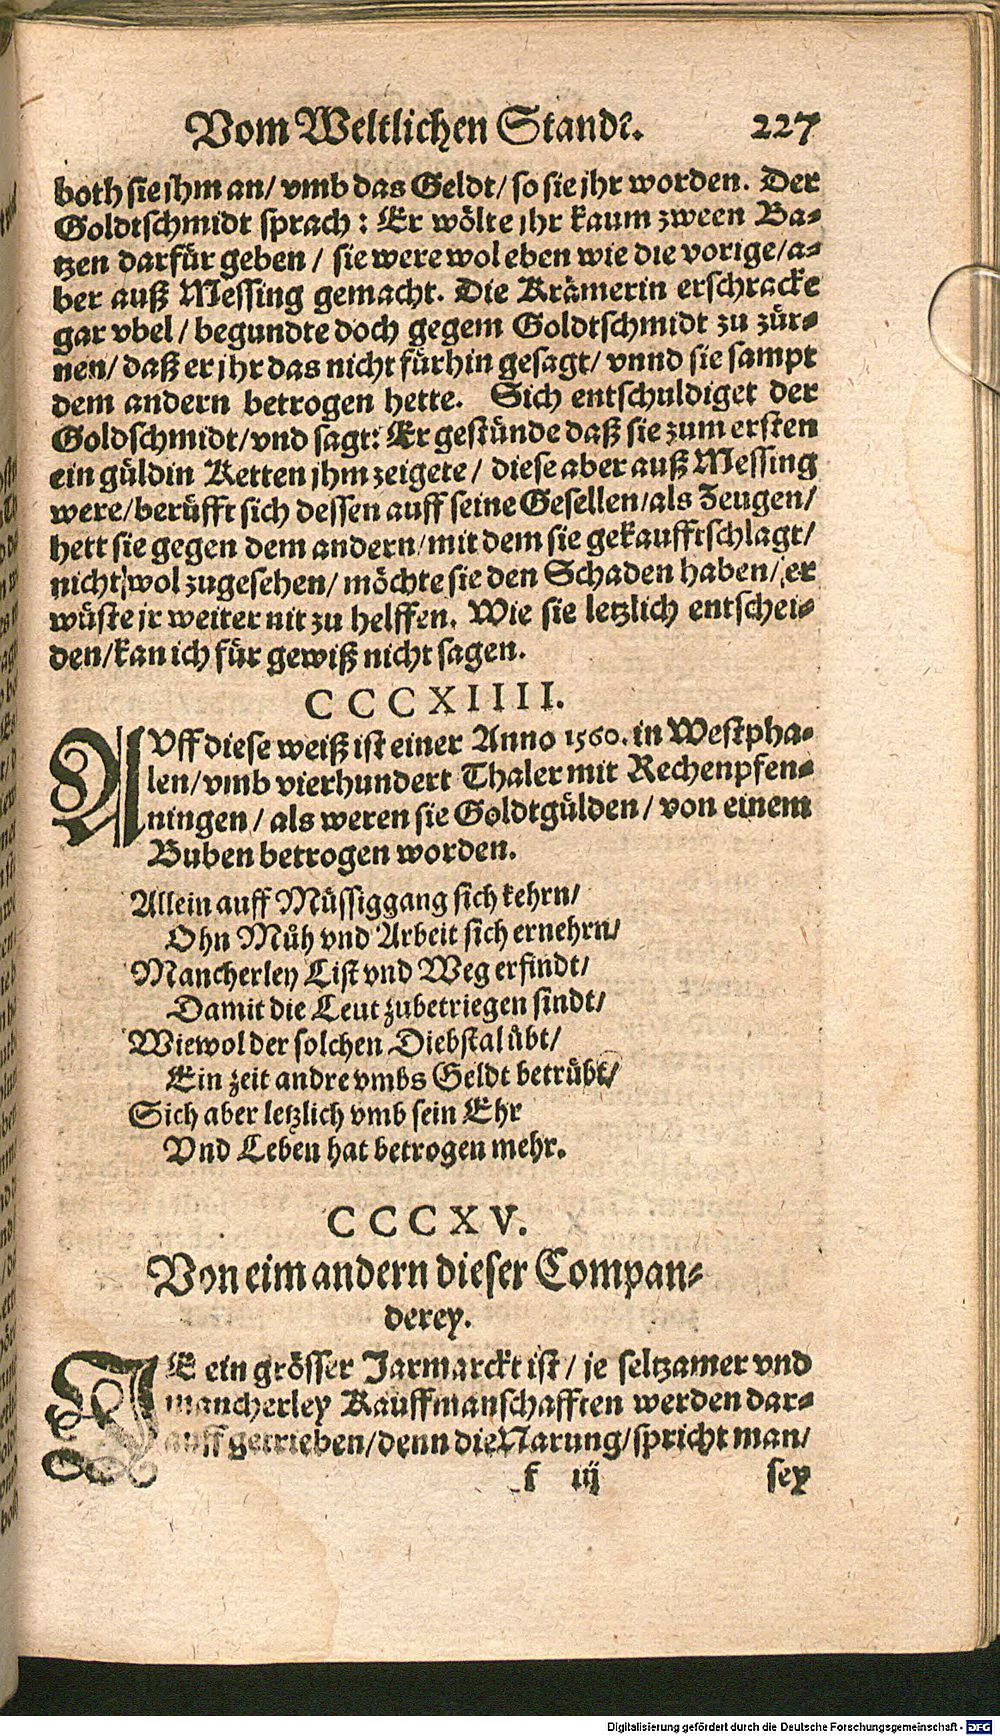 Vom Weltlichen Stande. 227
both sie jhm an/ vmb das Geldt/ so sie jhr worden. Der
Goldtschmidt sprach: Er wölte jhr kaum zween Ba-
tzen darfür geben / sie were wol eben wie die vorige/ a-
ber auß Messing gemacht. Die Krämerin erschracke
gar vbel / begundte doch gegem Goldtschmidt zu zür-
nen/ daß er jhr das nicht fürhin gesagt/ vnnd sie sampt
dem andern betrogen hette. Sich entschuldiget der
Goldschmidt/ vnd sagt: Er gestünde daß sie zum ersten
ein güldin Ketten jhm zeigete / diese aber auß Messing
were/ berüfft sich dessen auff seine Gesellen/ als Zeugen/
hett sie gegen dem andern/ mit dem sie gekaufftschlagt/
nicht wol zugesehen/ möchte sie den Schaden haben/ er
wüste jr weiter nit zu helffen. Wie sie letzlich entschei-
den/ kan ich für gewiß nicht sagen.
CCCXIIII.
AVff diese weiß ist einer Anno 1560. in Westpha-
len/ vmb vierhundert Thaler mit Rechenpfen-
ningen / als weren sie Goldtgülden / von einem
Buben betrogen worden.
Allein auff Müssiggang sich kehrn/
Ohn Müh vnd Arbeit sich ernehrn/
Mancherley List vnd Weg erfindt/
Damit die Leut zubetriegen sindt/
Wiewol der solchen Diebstal übt/
Ein zeit andre vmbs Geldt betrübt/
Sich aber letzlich vmb sein Ehr
Vnd Leben hat betrogen mehr.
CCCXV.
Von eim andern dieser Compan-
derey.
JE ein grösser Jarmarckt ist / je seltzamer vnd
mancherley Kauffmanschafften werden dar-
auff getrieben/ denn die Narung/ spricht man/
f iij sey
Digitalisierung gefördert durch die Deutsche Forschungsgemeinschaft - DFG